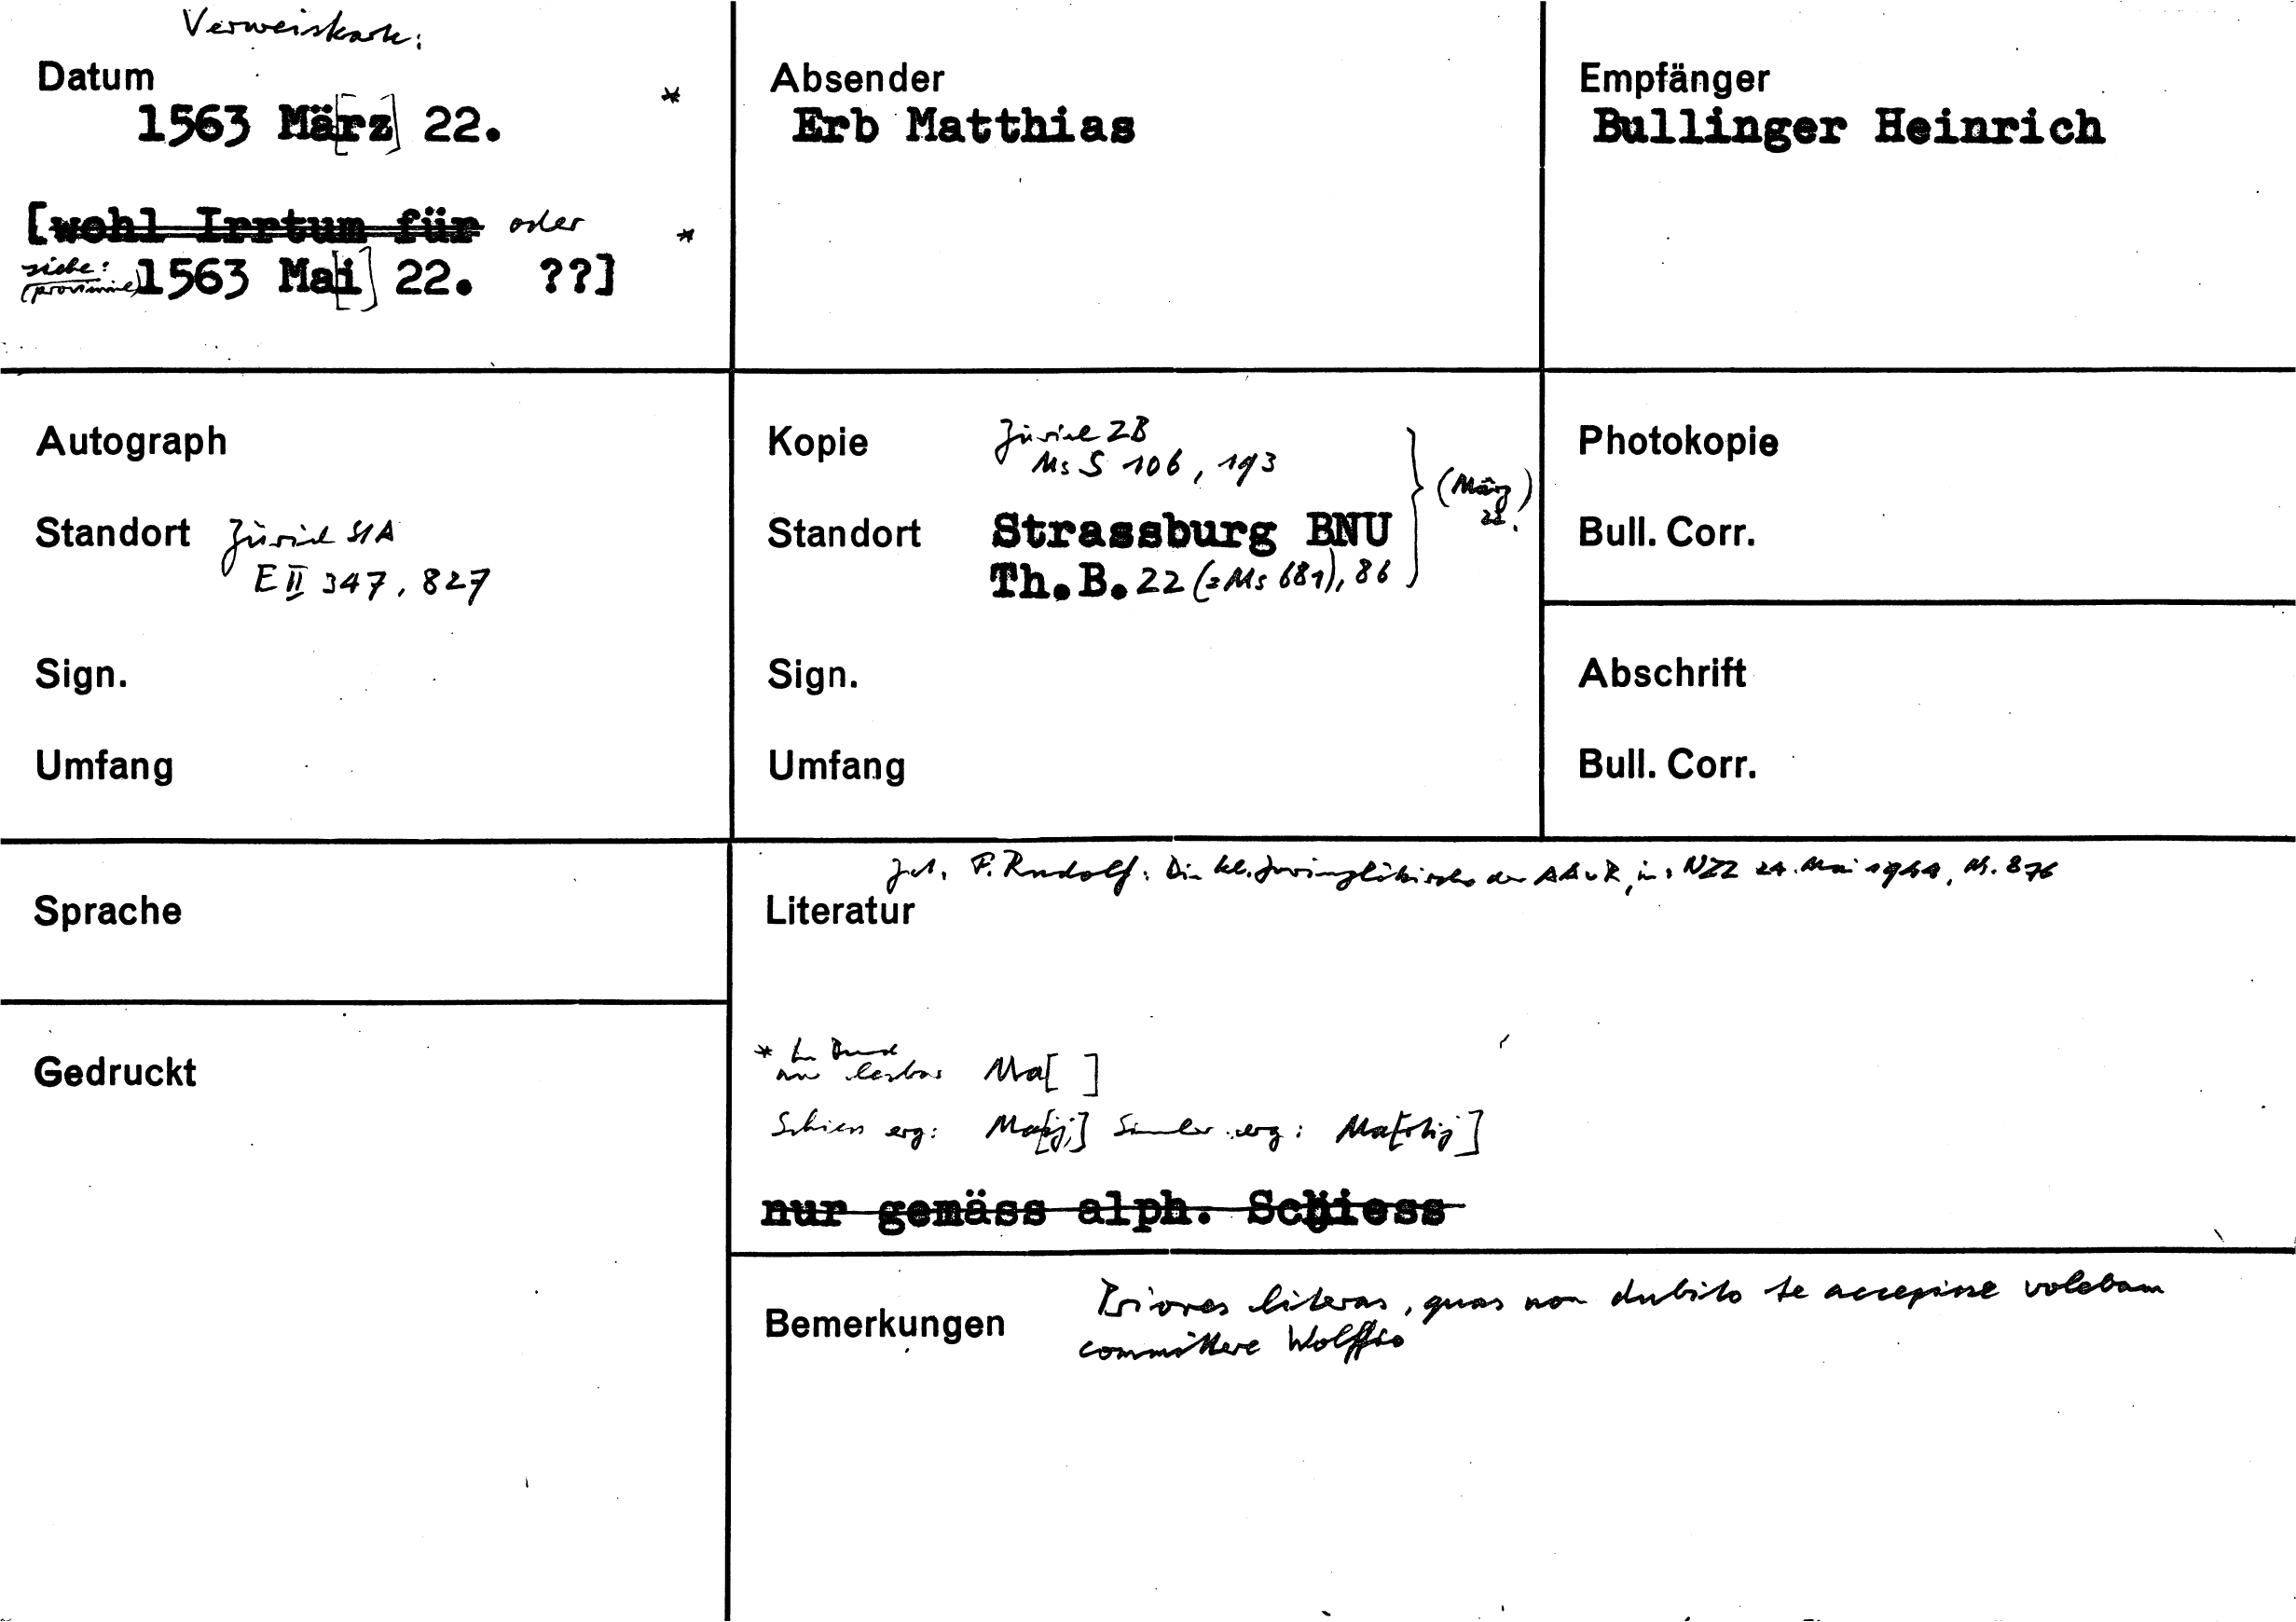 Verweiskarte:
Datum
1563 Mä[rz] 22. *
[wohl Irrtum für oder *
siehe:
1563 Ma[i] 22. ??]
Absender
Erb Matthias
Empfänger
Bullinger Heinrich
Autograph
Standort Zürich StA
E II 347, 827
Sign.
Umfang
Kopie Zürich ZB
Ms S 106, 193
Standort Strassburg BNU
Th.B. 22 (=Ms 681), 86
(März
22.)
Sign.
Umfang
Photokopie
Bull. Corr.
Abschrift
Bull. Corr.
Sprache
Gedruckt
F. Rudolf: Die kl. Zwinglikirche der in: NZZ 24. Mai Nr. 876
Literatur
* Im
nur lesbar Ma[ ]
Schiess erg: Ma[ij] Simler erg: Ma[rtij]
nur gemäss alph. Schiess
Bemerkungen
Priores literas, quas non dubito te accepisse volebam
committere Wolffio